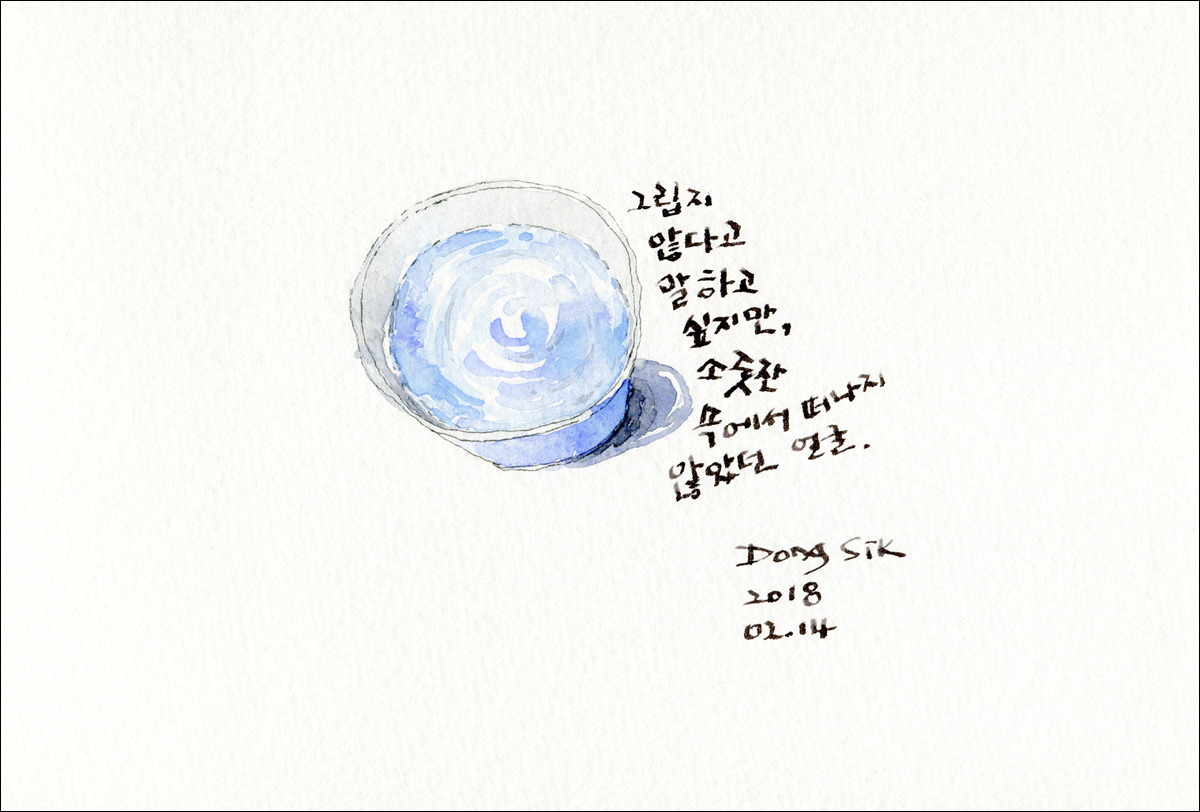 그립지
않다고
말하고
싶지만,
소줏잔
속에서 떠나지
않았던 얼굴.
Dong Sik
2018
02.14